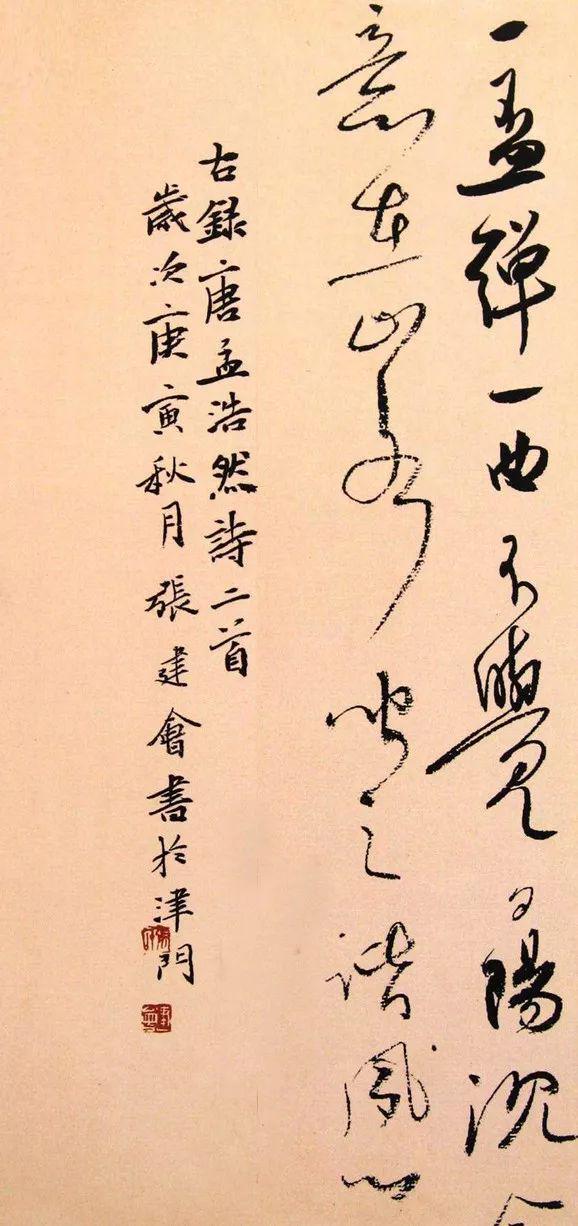 一盃彈一曲不覺夕陽沉
意在山水聞之諧夙心
右錄唐孟浩然詩二首
歲次庚寅秋月張建會書於津門